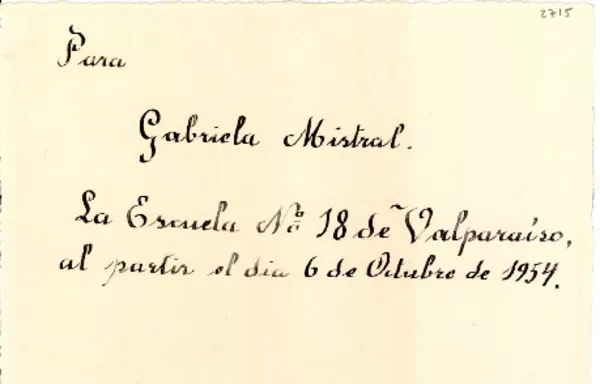 2715
Para
Gabriela Mistral.
La Escuela Nº 18 de Valparaíso,
al partir el dia 6 de Octubre de 1954.